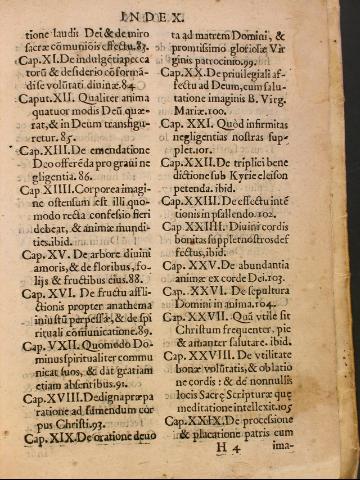 INDEX.
tione laudis Dei & de miro
sacræ cōmuniõis effectu.83.
Cap.XI. De indulgētia pecca
torū & desiderio cōformā-
di se volūtati diuinæ.84
Caput.XII. Qualiter anima
quatuor modis Deū quæ-
rat, & in Deum transfigu-
retur.85.
Cap.XIII. De emendatione
Deo offerēda pro graui ne
gligentia.86.
Cap.XIIII.Corporea imagi
ne ostensum est illi quo-
modo recta confessio fieri
debeat, & animæ mundi
ties.ibid.
Cap. XV. De arbore diuini
amoris, & de floribus, fo-
lijs & fructibus eius.88.
Cap. XVI. De fructu affli-
ctionis propter anathema
iniustū perpessæ, & de spi
rituali cōmunicatione.89.
Cap. VXII. Quomodo Do-
minus spiritualiter commu
nicat suos, & dat gratiam
etiam absentibus.91.
Cap.XVIII.De digna præpa
ratione ad sumendum cor
pus Christi.93.
Cap.XIX.De oratione deuo
ta ad matrem Domini, &
promtissimo gloriosæ Vir
ginis patrocinio.99.
Cap.XX.De priuilegiali af-
fectu ad Deum, cum salu-
tatione imaginis B. Virg.
Mariæ.100.
Cap. XXI. Quòd infirmitas
negligentias nostras sup-
plet.101.
Cap.XXII. De triplici bene
dictione sub Kyrie eleison
petenda. ibid.
Cap.XXIII.De effectu intē
tionis in psallendo.102.
Cap.XXIIII. Diuini cordis
bonitas supplet nostros def
fectus,ibid.
Cap. XXV. De abundantia
animæ ex corde Dei.103.
Cap. XXVI. De sepultura
Domini in anima.104.
Cap. XXVII. Quā vtile sit
Christum frequenter, pie
& amanter salutare. ibid.
Cap. XXVIII. De vtilitate
bonæ volūtatis, & oblatio
ne cordis: & de nonnullis
locis Sacræ Scripturæ quę
meditatione intellexit.105
Cap.XXIX.De processione
& placatione patris cum
H 4 ima-